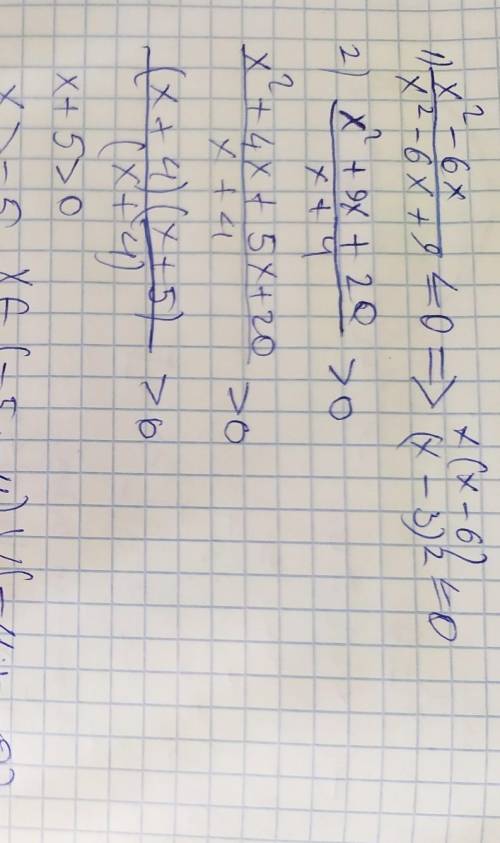 1) x² - 6x / x² - 6x + 9 ≤ 0 => x(x - 6) / (x - 3)² ≤ 0
2) x² + 9x + 20 / x + 4 > 0
x² + 4x + 5x + 20 / x + 4 > 0
(x + 4)(x + 5) / (x + 4) > 0
x + 5 > 0
x > -5 x ∈ (-5